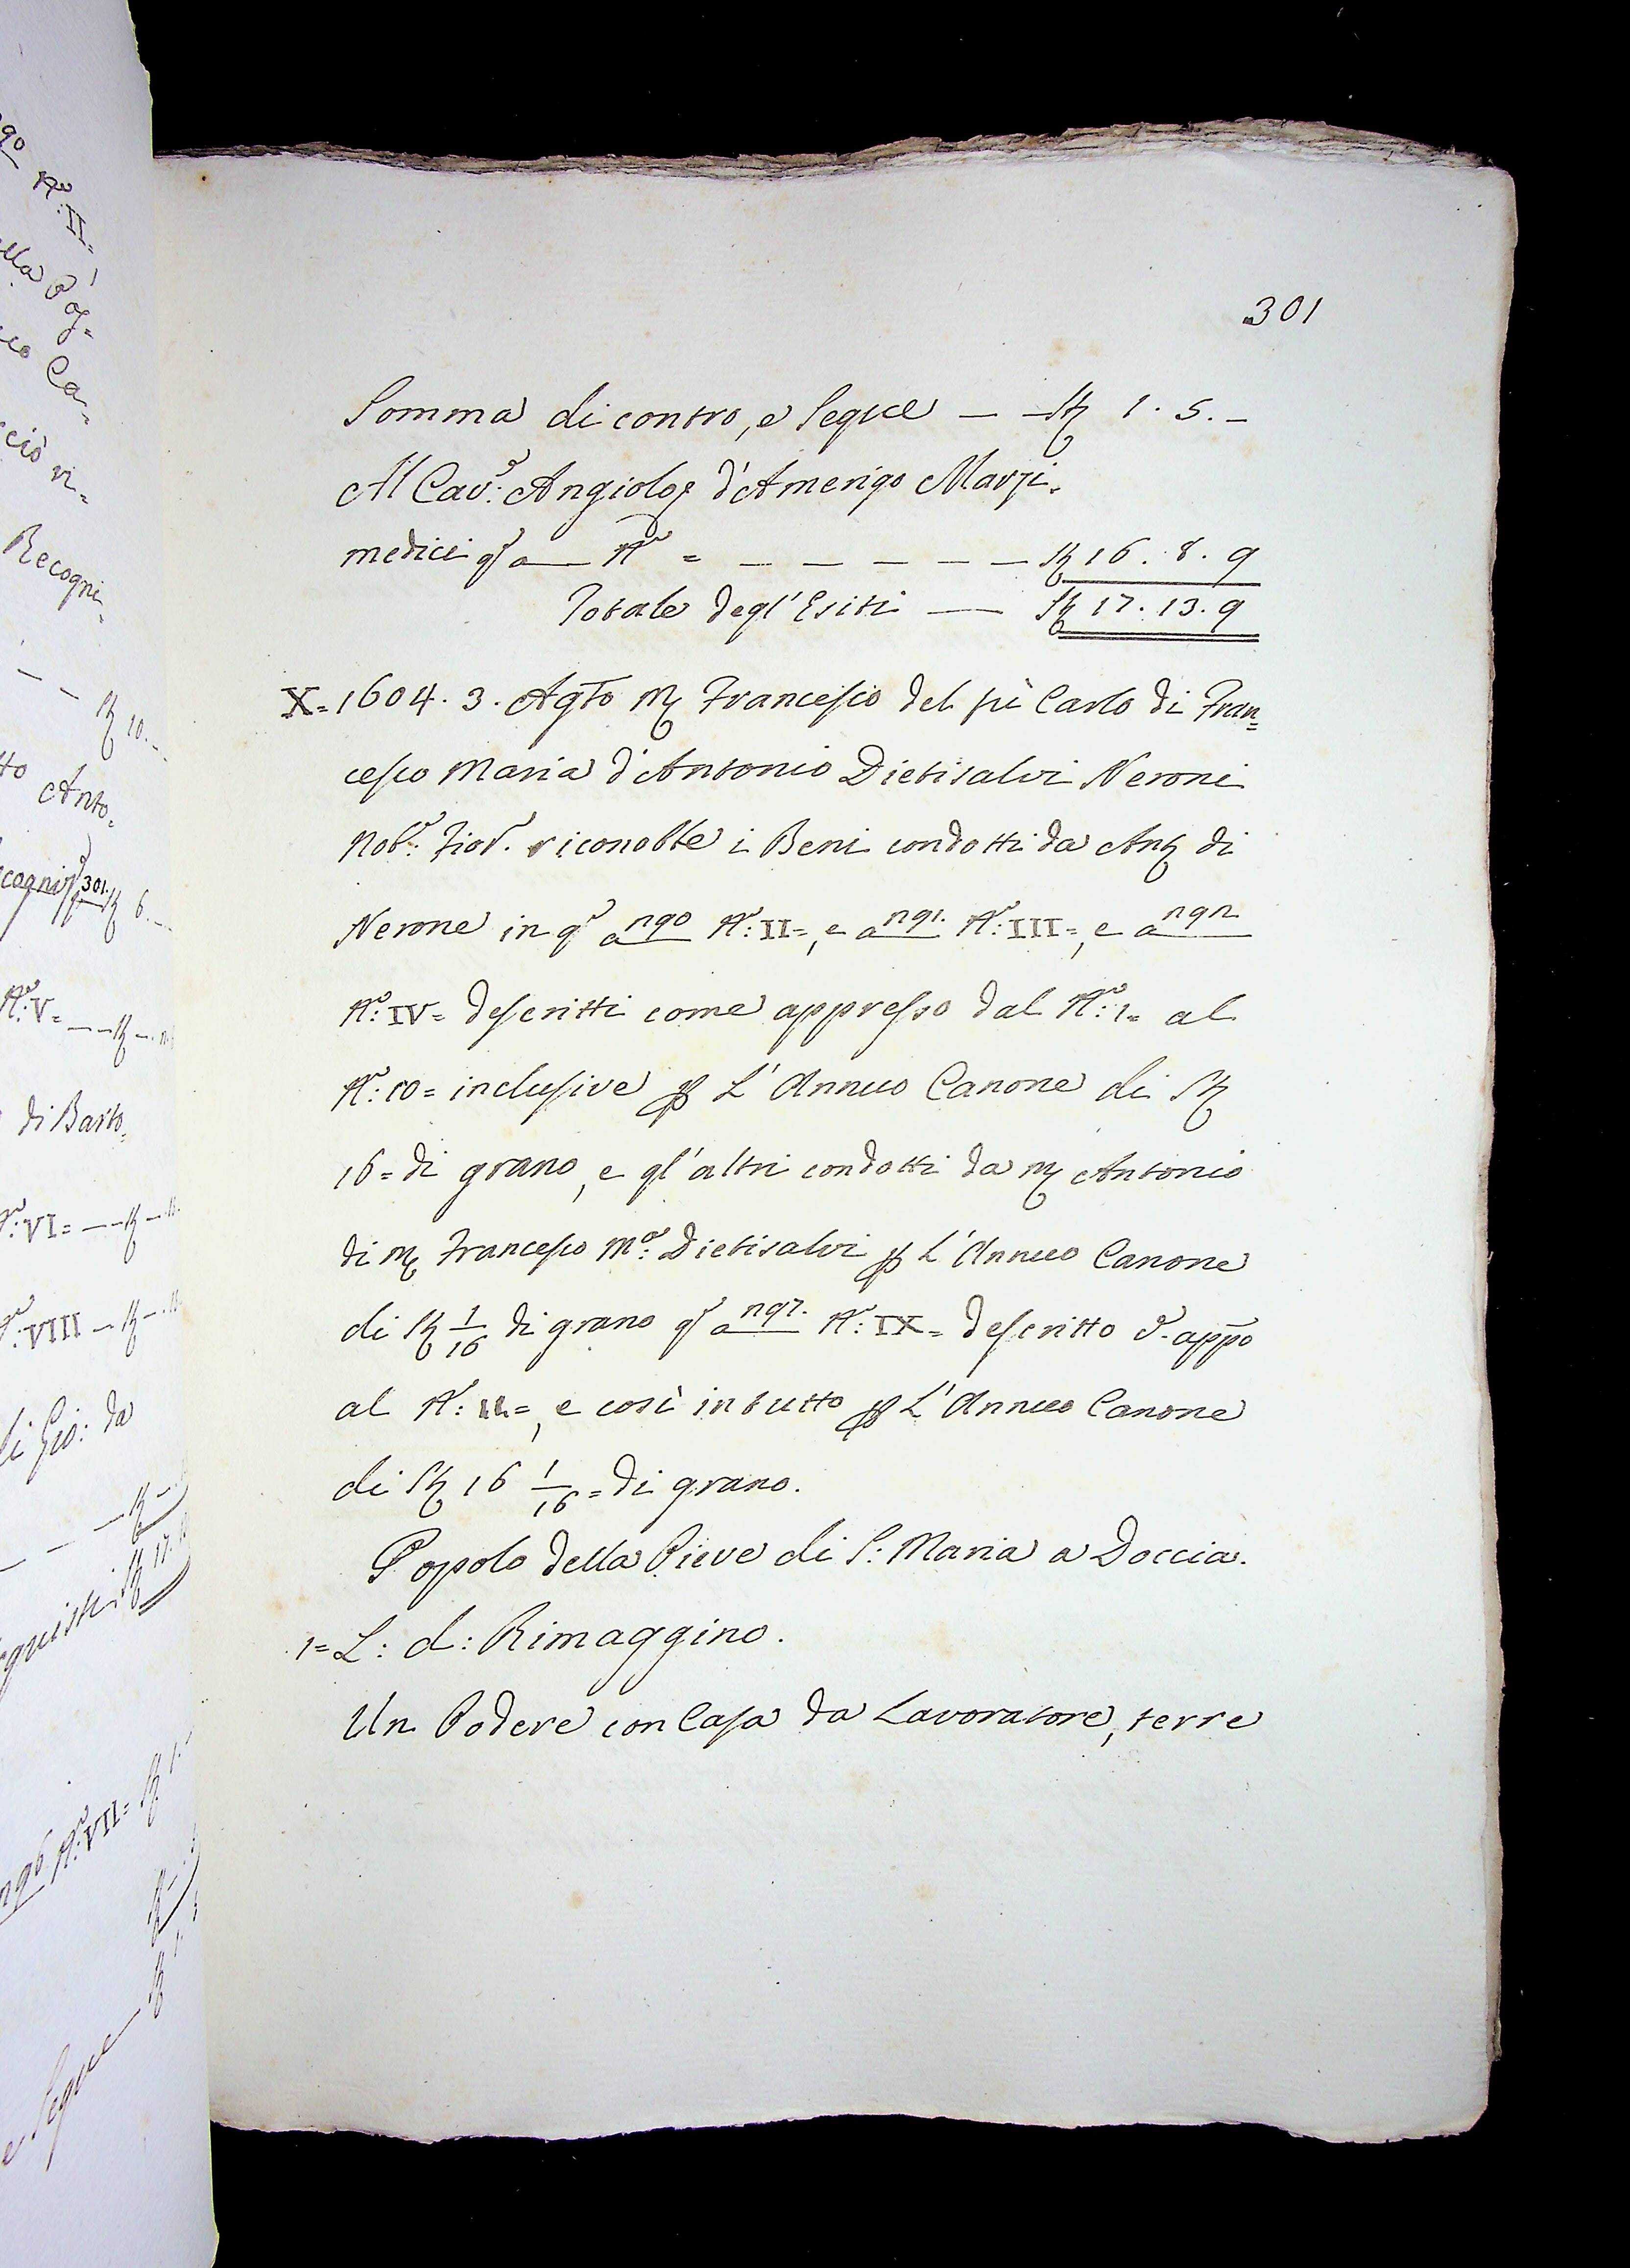 301
Somma di contro, e Segue — — St 1. 5. –
Al Cav.e Angiolo d'Amerigo Marzi-
medici qo a— No = — — — — — St 16. 8. 9
Totale degl'Esiti — St 17. 13. 9
X= 1604. 3. Agto Mr Francesco del fù Carlo di Fran=
cesco Maria d'Antonio Dietisalvi Neroni
Nob.e Fior.o riconobbe i Beni condotti da Ant di
Nerone in qo a 290 No: II=, e a 291. No: III=, e a 292
No: IV= descritti come appresso dal No: 1= al
No: 10= inclusive per L'Annuo Canone di St
16= di grano, e gl'altri condotti da Mr Antonio
di Mr Francesco Ma: Dietisalvi per L'Annuo Canone
di St 1/16 di grano qo a 297. No: IX= descritto d.o appo
al No: 11=, e così in tutto per L'Annuo Canone
di St 16 1/16= di grano.
Popolo della Pieve di S: Maria a Doccia.
1= L: d: Rimaggino.
Un Podere con Casa da Lavoratore, terre
No: II=
Recogni=
St 10. –
Anto=
301. St 6. –
No: V= — — St –
di Barto=
No: VI= — — St –
No: VIII — St –
di Gio: da
St 17.
296 No: VII= St 1. –
e Segue — St 1.